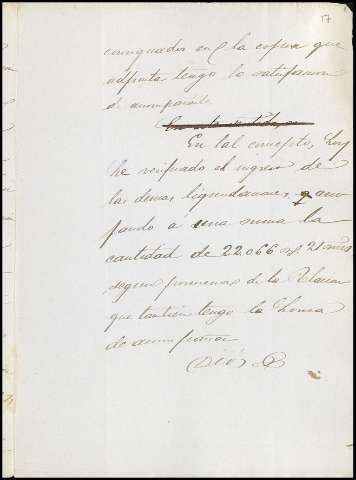 17
consignados en la copia que
adjunta tengo la satisfaccion
de acompañarle
En tal concepto, hoy
he verificado el ingreso de
las demas liquidaciones,
pando a una suma la
cantidad de 22.066 21
segun pormenor de la Relacion
que tambien tengo la honra
de acompañar
Dios